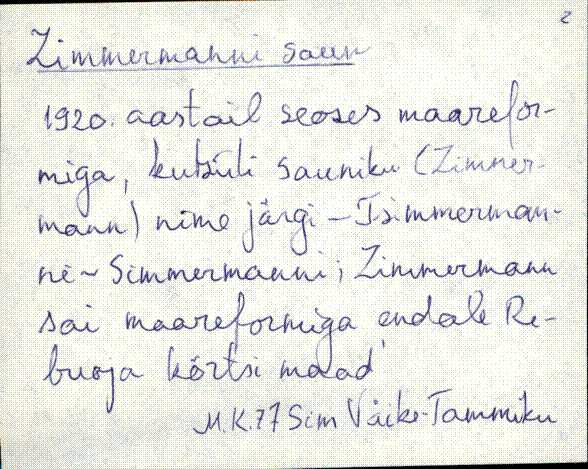 2
Zimmermanni saun
1920. aastail seoses maarefor-
miga, kutsuti sauniku (Zimmer-
mann) nime järgi – Tsimmerman-
ni ~ Simmermanni; Zimmermann
sai maareformiga endale Re-
buoja kõrtsi maad
M.K. 77 Sim Väike-Tammiku